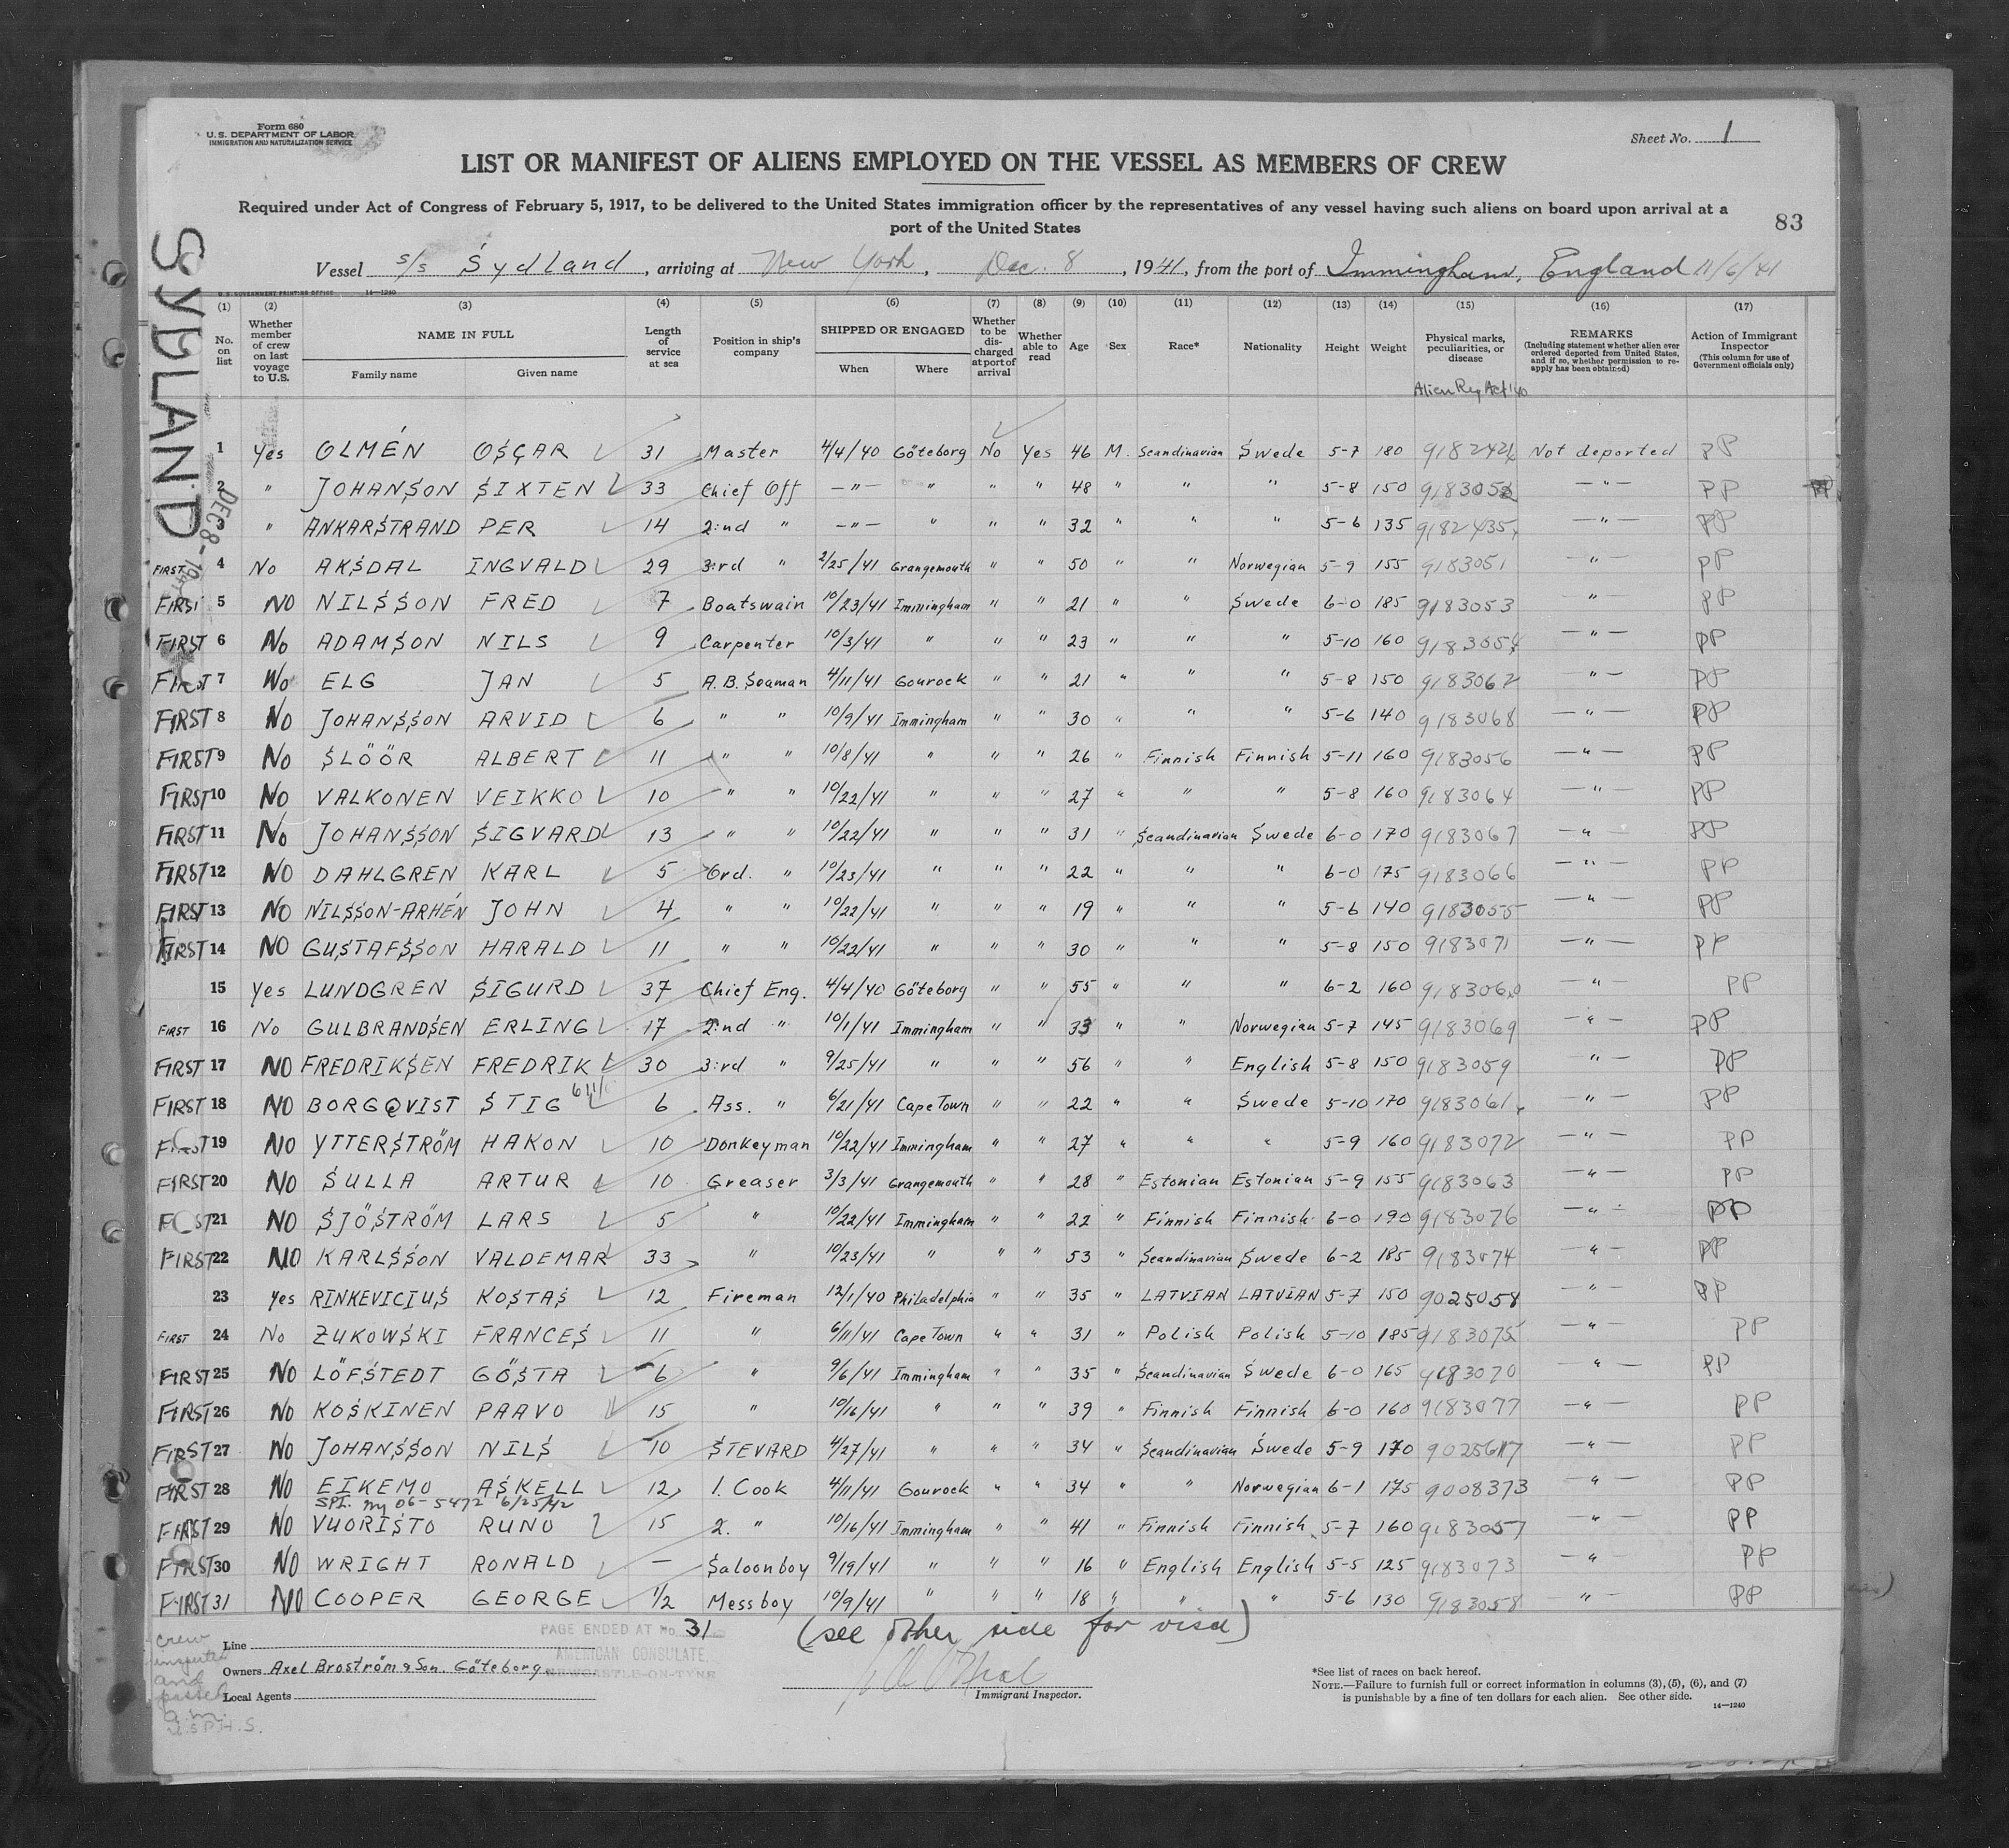 Form 680
U.S. DEPARTMENT OF LABOR
IMMIGRATION AND NATURALIZATION SERVICE
Sheet No. 1
LIST OR MANIFEST OF ALIENS EMPLOYED ON THE VESSEL AS MEMBERS OF CREW
Required under Act of Congress of February 5, 1917, to be delivered to the United States immigration officer by the representatives of any vessel having such aliens on board upon arrival at a
port of the United States
83
SYDLAND
DEC 8 - 1941
Vessel s/s Sydland, arriving at New York, Dec. 8, 1941, from the port of Immingham, England 11/6/41
U.S. GOVERNMENT PRINTING OFFICE 14-1240
(1) (2) (3) (4) (5) (6) (7) (8) (9) (10) (11) (12) (13) (14) (15) (16) (17)
No. on list
Whether member of crew on last voyage to U.S.
NAME IN FULL
Family name Given name
Length of service at sea
Position in ship's company
SHIPPED OR ENGAGED
When Where
Whether to be discharged at port of arrival
Whether able to read
Age
Sex
Race*
Nationality
Height
Weight
Physical marks, peculiarities, or disease
Alien Reg Act '40
REMARKS
(Including statement whether alien ever ordered deported from United States, and if so, whether permission to re-apply has been obtained)
Action of Immigrant Inspector
(This column for use of Government officials only)
1 Yes OLMÉN OSCAR 31 Master 4/4/40 Göteborg No Yes 46 M. Scandinavian Swede 5-7 180 9182424 Not deported PP
2 " JOHANSON SIXTEN 33 Chief Off —"— " " " 48 " " " 5-8 150 9183052 —"— PP
" ANKARSTRAND PER 14 2:nd " —"— " " " 32 " " " 5-6 135 9182435 —"— PP
FIRST 4 No AKSDAL INGVALD 29 3:rd " 2/25/41 Grangemouth " " 50 " " Norwegian 5-9 155 9183051 —"— PP
FIRST 5 NO NILSSON FRED 7 Boatswain 10/23/41 Immingham " " 21 " " Swede 6-0 185 9183053 "— PP
FIRST 6 No ADAMSON NILS 9 Carpenter 10/3/41 " " " 23 " " " 5-10 160 9183054 —"— PP
FIRST 7 No ELG JAN 5 A.B. Seaman 4/11/41 Gourock " " 21 " " " 5-8 150 9183062 —"— PP
FIRST 8 No JOHANSSON ARVID 6 " " 10/9/41 Immingham " " 30 " " " 5-6 140 9183068 —"— PP
FIRST 9 No SLÖÖR ALBERT 11 " " 10/8/41 " " " 26 " Finnish Finnish 5-11 160 9183056 —"— PP
FIRST 10 No VALKONEN VEIKKO 10 " " 10/22/41 " " " 27 " " " 5-8 160 9183064 —"— PP
FIRST 11 No JOHANSSON SIGVARD 13 " " 10/22/41 " " " 31 " Scandinavian Swede 6-0 170 9183067 —"— PP
FIRST 12 NO DAHLGREN KARL 5 Ord. " 10/23/41 " " " 22 " " " 6-0 175 9183066 —"— PP
FIRST 13 NO NILSSON-ARHÉN JOHN 4 " " 10/22/41 " " " 19 " " " 5-6 140 9183055 —"— PP
FIRST 14 NO GUSTAFSSON HARALD 11 " " 10/22/41 " " " 30 " " " 5-8 150 9183071 —"— PP
15 Yes LUNDGREN SIGURD 37 Chief Eng. 4/4/40 Göteborg " " 55 " " " 6-2 160 9183060 —"— PP
FIRST 16 No GULBRANDSEN ERLING 17 2:nd " 10/1/41 Immingham " " 33 " " Norwegian 5-7 145 9183069 —"— PP
FIRST 17 NO FREDRIKSEN FREDRIK 30 3:rd " 9/25/41 " " " 56 " " English 5-8 150 9183059 "— PP
FIRST 18 NO BORGQVIST STIG 6 Ass. " 6/21/41 Cape Town " " 22 " " Swede 5-10 170 9183061 —"— PP
FIRST 19 NO YTTERSTRÖM HAKON 10 Donkeyman 10/22/41 Immingham " " 27 " " " 5-9 160 9183072 —"— PP
FIRST 20 NO SULLA ARTUR 10 Greaser 3/3/41 Grangemouth " " 28 " Estonian Estonian 5-9 155 9183063 —"— PP
FIRST 21 NO SJÖSTRÖM LARS 5 " 10/22/41 Immingham " " 22 " Finnish Finnish 6-0 190 9183076 —"— PP
FIRST 22 NO KARLSSON VALDEMAR 33 " 10/23/41 " " " 53 " Scandinavian Swede 6-2 185 9183074 —"— PP
23 Yes RINKEVICIUS KOSTAS 12 Fireman 12/1/40 Philadelphia " " 35 " LATVIAN LATVIAN 5-7 150 9025058 "— PP
FIRST 24 No ZUKOWSKI FRANCES 11 " 6/11/41 Cape Town " " 31 " Polish Polish 5-10 185 9183075 —"— PP
FIRST 25 NO LÖFSTEDT GÖSTA 6 " 9/6/41 Immingham " " 35 " Scandinavian Swede 6-0 165 9183070 "— PP
FIRST 26 No KOSKINEN PAAVO 15 " 10/16/41 " " " 39 " Finnish Finnish 6-0 160 9183077 —"— PP
FIRST 27 NO JOHANSSON NILS 10 STEVARD 4/27/41 " " " 34 " Scandinavian Swede 5-9 170 9025617 —"— PP
FIRST 28 NO EIKEMO ASKELL 12 1. Cook 4/11/41 Gourock " " 34 " " Norwegian 6-1 175 9008373 " PP
SPI. ny 06-5472 6/25/42
FIRST 29 NO VUORISTO RUNO 15 2. " 10/16/41 Immingham " " 41 " Finnish Finnish 5-7 160 9183057 "— PP
FIRST 30 NO WRIGHT RONALD — Saloonboy 9/19/41 " " " 16 " English English 5-5 125 9183073 " PP
FIRST 31 NO COOPER GEORGE 1/2 Messboy 10/9/41 " " " 18 " " " 5-6 130 9183058 "— PP
PAGE ENDED AT No. 31
AMERICAN CONSULATE,
NEWCASTLE-ON-TYNE
(see other side for visa)
crew inspected and passed a.m. U.S.P.H.S.
Line
Owners Axel Broström & Son. Göteborg
Local Agents
Immigrant Inspector.
*See list of races on back hereof.
NOTE.—Failure to furnish full or correct information in columns (3), (5), (6), and (7)
is punishable by a fine of ten dollars for each alien. See other side.
14-1240